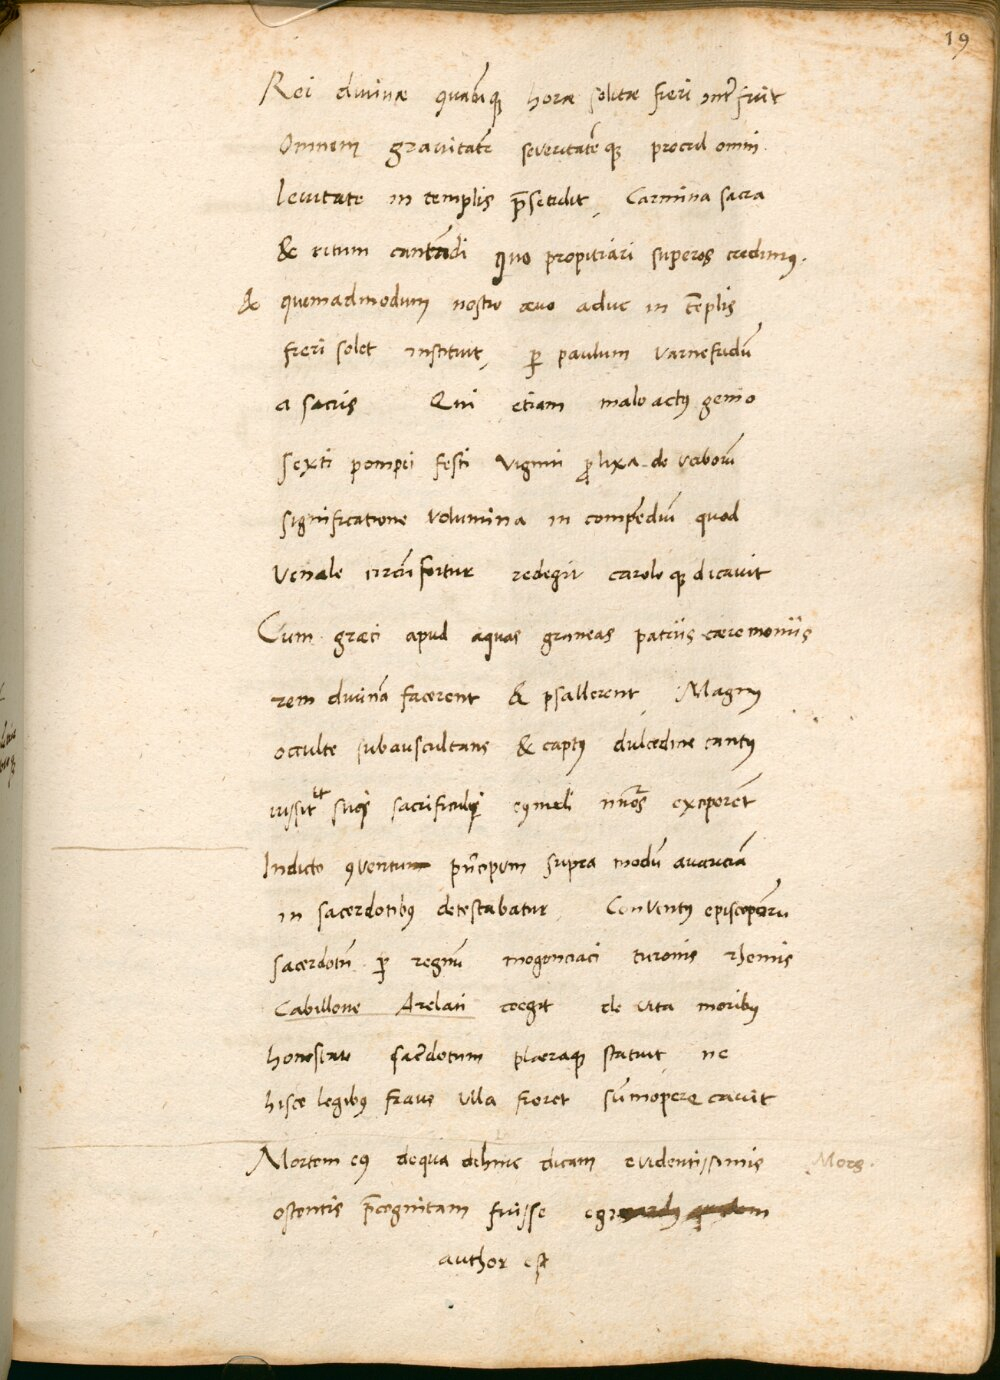 19
Rei diuinæ quacūq; horæ solitæ fieri īnterfuit
Omnem grauitatē seueritatēq; procul omni
leuitate in templis p̄setulit, Carmina sacra
& ritum cantādi quo propitiari superos credimus.
& quemadmodum nostro æuo aduc in tēplis
fieri solet instituit, ꝑ paulum varnefridū
a sacris Qui etiam malo actꝰ genio
Sexti pompei festi viginti ꝓlixa de verborū
significatione volumina in compēdiū quod
venale circūfertur redegit caroloq; dicauit
Cum græci apud aquas graneas patriis cæremoniis
rem diuinā facerent & psallerent, Magnꝰ
occulte subauscultans & captꝰ dulcedine cantꝰ
iussit ut suis sacrificuli eꝰmodi nūos exciperēt
Indicto ꝯuentu pn̄cipum supra modū auariciā
in sacerdotibꝰ detestabatur, Conuentꝰ episcoporū
sacerdotū ꝑ regnū mogonciaci turonis rhemis
Cabillone Arelati coegit de vita moribꝰ
honestate sacerdotum pleraq; statuit, ne
hisce legibꝰ fraus vlla fieret sūmopere cauit
Mortem eꝰ dequa dehinc dicam euidentissimis
Mors.
ostentis p̄cognitam fuisse
author est